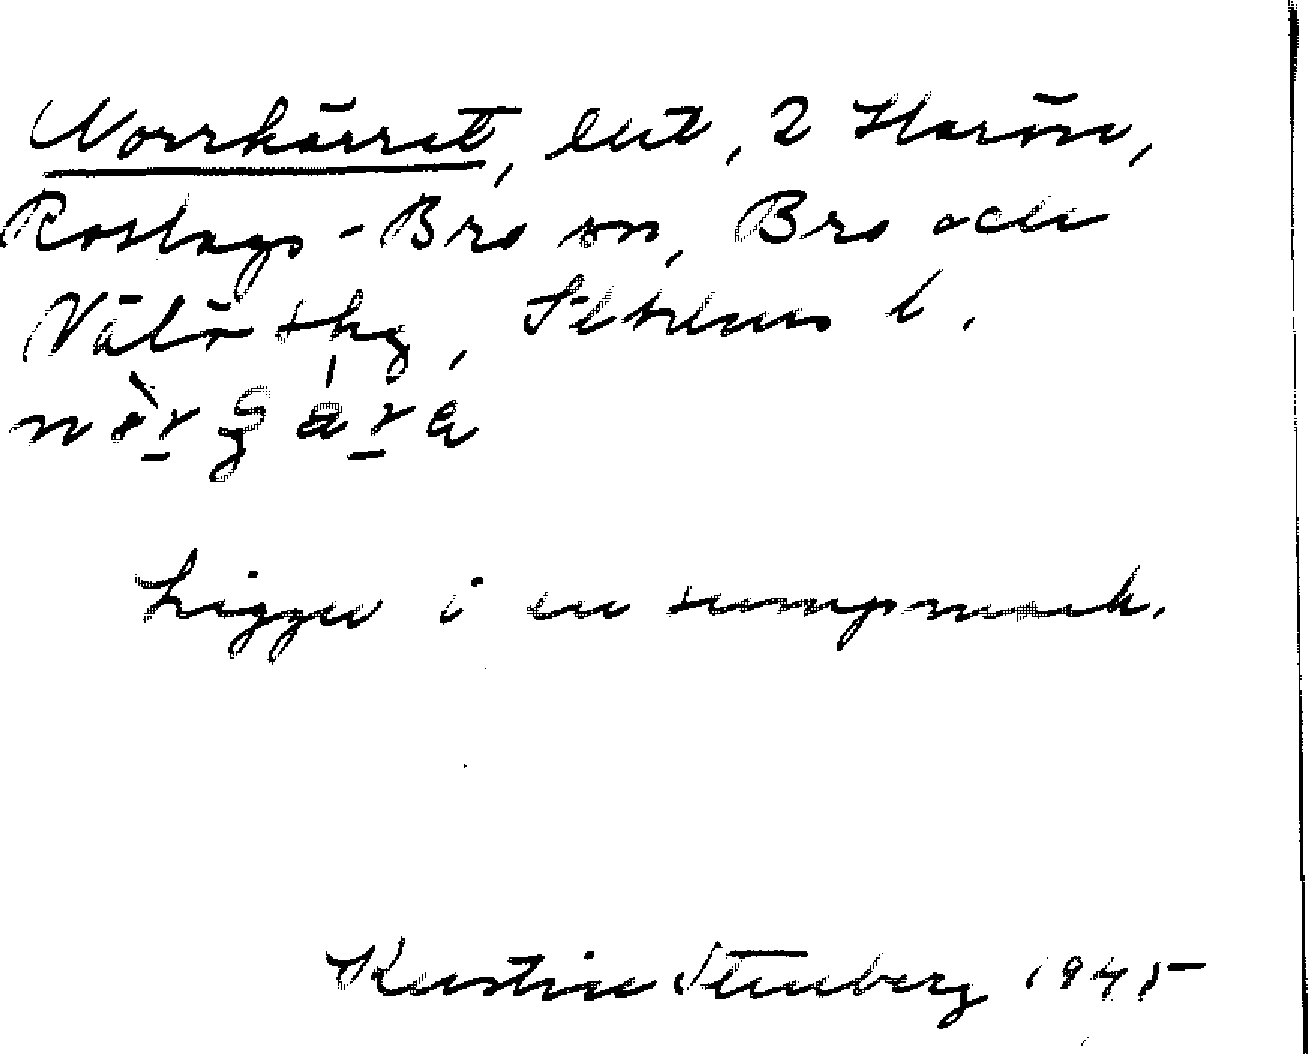 Norrkärret, lut, 2 Harön,
Roslags-Bro sn, Bro och
Vätö skg, Sthlms l.
Ligger i en sumpmark.
Kerstin Stenberg 1945